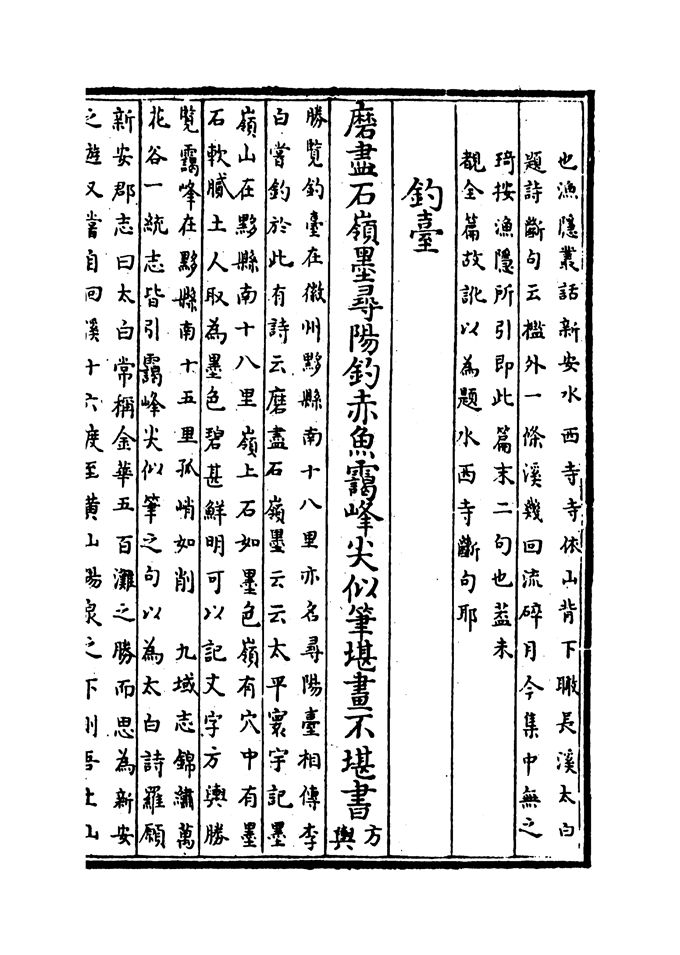 也漁隱叢話新安水西寺寺依山背下瞰長溪太白
題詩斷句云檻外一條溪幾回流碎月今集中無之
琦按漁隱所引即此篇末二句也蓋未
覩全篇故訛以為題水西寺斷句耶
釣臺
磨盡石嶺墨尋陽釣赤魚靄峰尖似筆堪畫不堪書方
輿
勝覽釣臺在徽州黟縣南十八里亦名尋陽臺相傳李
白嘗釣於此有詩云磨盡石嶺墨云云太平寰宇記墨
嶺山在黟縣南十八里嶺上石如墨色嶺有穴中有墨
石軟膩土人取為墨色碧甚鮮明可以記文字方輿勝
覽靄峰在黟縣南十五里孤峭如削 九域志錦繡萬
花谷一統志皆引靄峰尖似筆之句以為太白詩羅願
新安郡志曰太白常稱金華五百灘之勝而思為新安
之遊又嘗自回溪十六度至黄山湯泉之下則吾土山